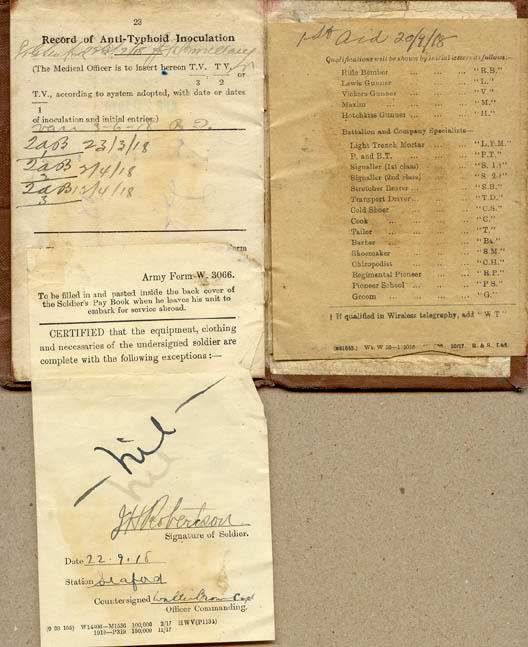 23
Record of Anti-Typhoid Inoculation
(The Medical Officer is to insert hereon T.V. T.V.
3 2 or
T.V., according to system adopted, with date or dates
1
of inoculation and initial entries.)
23/3/18
2/4/18
3
/4/18
3
Form
Army Form W. 3066.
To be filled in and pasted inside the back cover of
the Soldier's Pay Book when he leaves his unit to
embark for service abroad.
CERTIFIED that the equipment, clothing
and necessaries of the undersigned soldier are
complete with the following exceptions:—
— Nil —
JH Robertson
Signature of Soldier.
Date 22.9.18
Station Seaford
Countersigned
Officer Commanding.
W14406—M1536 100,000 2/17 HWV(P1134)
1918—P319 150,000 11/17
1st Aid 20/4/18
Qualifications will be shown by initial letters as follows:—
Rifle Bomber ... ... ... "R.B."
Lewis Gunner ... ... ... "L."
Vickers Gunner ... ... ... "V."
Maxim ... ... ... "M."
Hotchkiss Gunner ... ... ... "H."
Battalion and Company Specialists—
Light Trench Mortar ... ... "L.T.M."
P. and B.T. ... ... ... "P.T."
Signaller (1st class) ... ... "S. 1.†"
Signaller (2nd class) ... ... "S. 2.†"
Stretcher Bearer ... ... ... "S.B."
Transport Driver... ... ... "T.D."
Cold Shoer ... ... ... "C.S."
Cook ... ... ... "C."
Tailor ... ... ... "T."
Barber ... ... ... "Ba."
Shoemaker ... ... ... "S.M."
Chiropodist ... ... ... "C.H."
Regimental Pioneer ... ... "R.P."
Pioneer School ... ... ... "P.S."
Groom ... ... ... "G."
† If qualified in Wireless telegraphy, add "W.T."